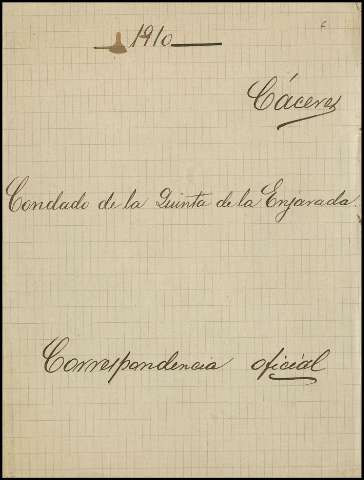 1910
Cáceres
Condado de la Quinta de la Enjarada.
Correspondencia oficial